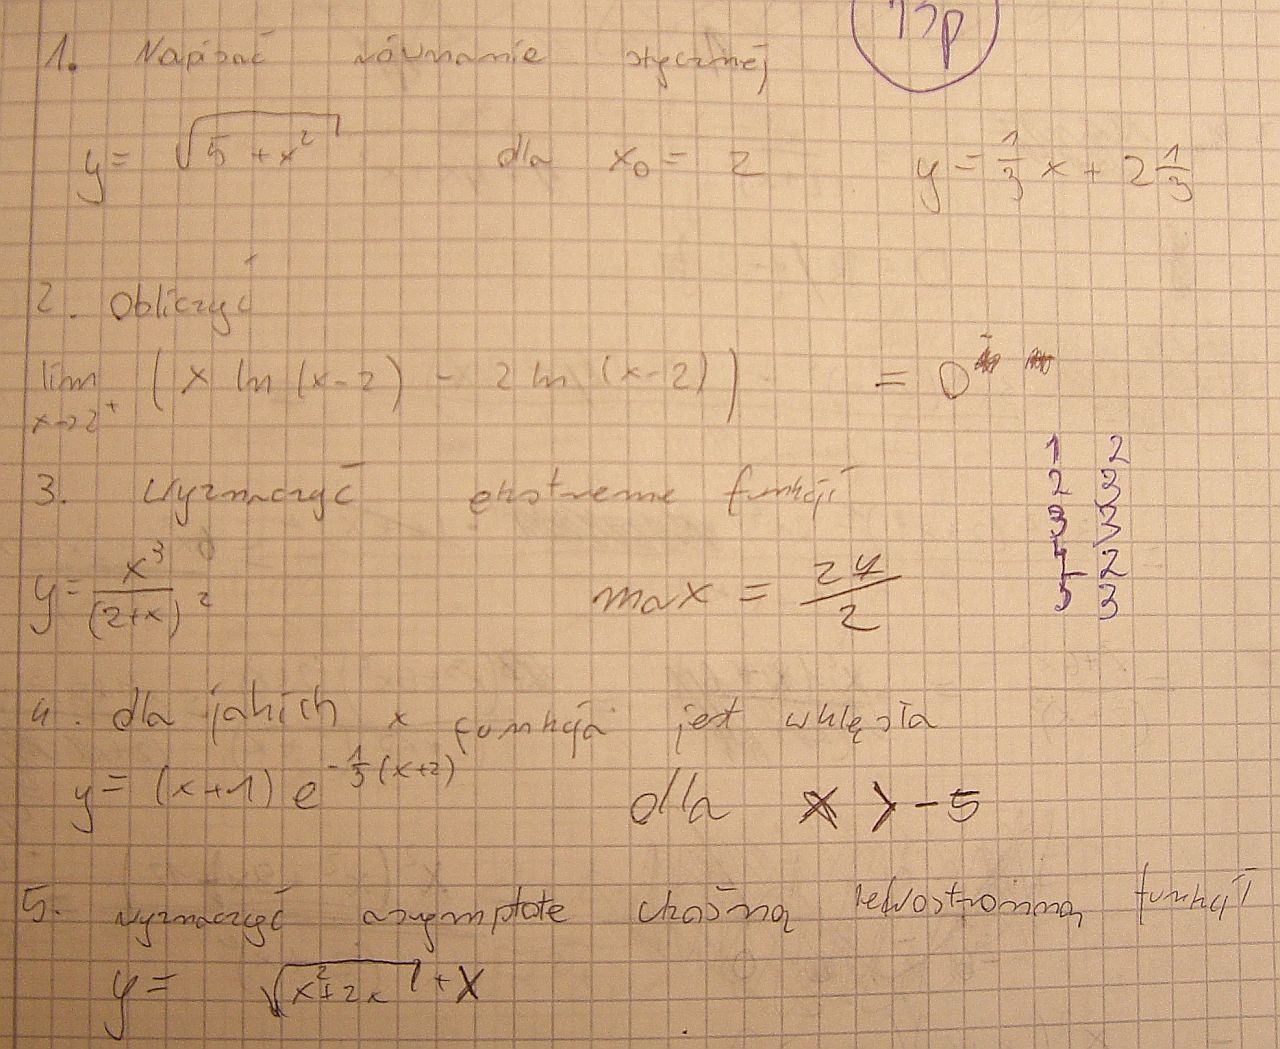 13p
1. Napisać równanie stycznej
y = √(5 + x²) dla x₀ = 2 y = 1/3 x + 2 1/3
2. Obliczyć
lim x→2⁺ (x ln (x-2) - 2 ln (x-2)) = 0
1 2
2 3
3. Wyznaczyć ekstreme funkcji
3 3
y = x³/(2+x)² max = 27/2
4 2
5 3
4. dla jakich x funkcja jest wklęsła
y = (x+1) e^(-1/3 (x+2)) dla x > -5
5. wyznaczyć asymptote ukośną lewostronną funkcji
y = √(x²+2x) + x